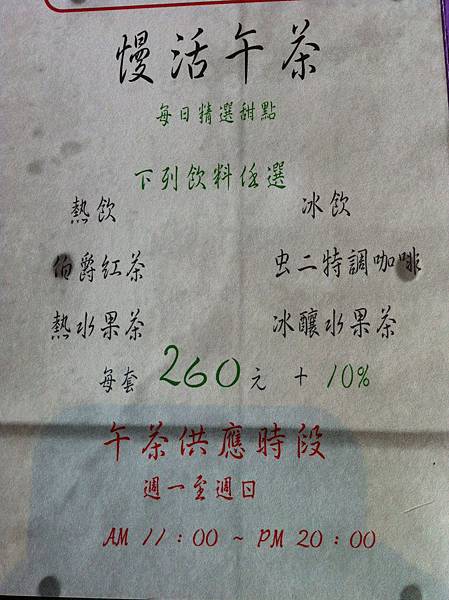 慢活午茶
每日精選甜點
下列飲料任選
熱飲 冰飲
伯爵紅茶 虫二特調咖啡
熱水果茶 冰釀水果茶
每套 260元 + 10%
午茶供應時段
週一至週日
AM 11:00 ~ PM 20:00